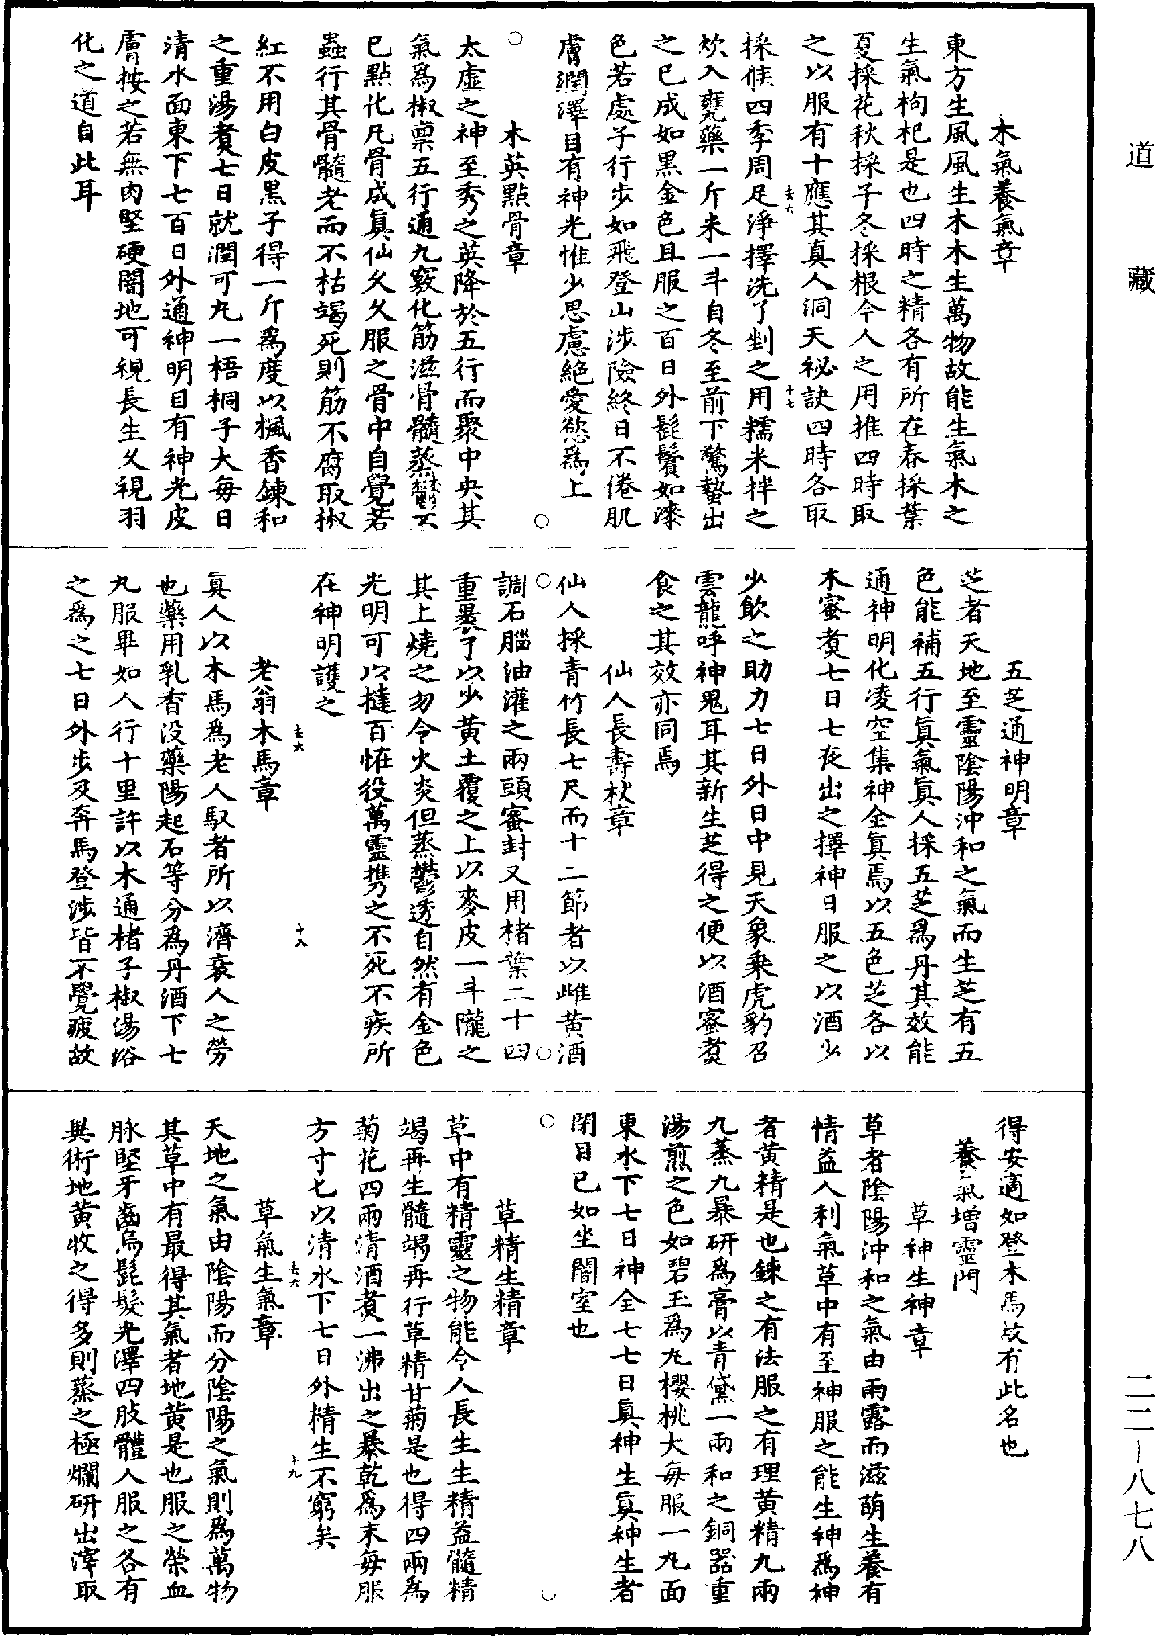 道藏
二二-八七八
木氣養氣章
東方生風風生木木生萬物故能生氣木之
生氣枸杞是也四時之精各有所在春採葉
夏採花秋採子冬採根今人之用推四時取
之以服有十應其真人洞天祕訣四時各取
去六
十七
採條四季周足淨擇洗了剉之用糯米拌之
炊入甕藥一斤米一斗自冬至前下驚蟄出
之已成如黑金色且服之百日外髭鬢如漆
色若處子行步如飛登山涉險終日不倦肌
膚潤澤目有神光惟少思慮絕愛慾為上
木英點骨章
太虛之神至秀之英降於五行而聚中央其
氣為椒稟五行通九竅化筋滋骨髓蒸不
已點化凡骨成真仙久久服之骨中自覺若
蟲行其骨髓老而不枯竭死則筋不腐取椒
紅不用白皮黑子得一斤為度以楓香鍊和
之重湯煮七日就潤可丸一梧桐子大每日
清水面東下七百日外通神明目有神光皮
膚按之若無肉堅硬闇地可視長生久視羽
化之道自此耳
五芝通神明章
芝者天地至靈陰陽沖和之氣而生芝有五
色能補五行真氣真人採五芝為丹其效能
通神明化凌空集神全真焉以五色芝各以
木蜜煮七日七夜出之擇神日服之以酒少
少飲之助力七日外日中見天象乘虎豹召
雲龍呼神鬼耳其新生芝得之便以酒蜜煮
食之其效亦同焉
仙人長壽杖章
仙人採青竹長七尺而十二節者以雌黃酒
調石腦油灌之兩頭蜜封又用楮葉二十四
重裹了以少黃土覆之上以麥皮一斗隴之
其上燒之勿令火炎但蒸鬱透自然有金色
光明可以撻百怪役萬靈携之不死不疾所
在神明護之
老翁木馬章
去六
十八
真人以木馬為老人馭者所以濟衰人之勞
也藥用乳香沒藥陽起石等分為丹酒下七
丸服畢如人行十里許以木通楮子椒湯浴
之為之七日外步及奔馬登涉皆不覺疲故
得安適如登木馬故有此名也
養氣增靈門
草神生神章
草者陰陽沖和之氣由雨露而滋萌生養有
情益人利氣草中有至神服之能生神為神
者黃精是也鍊之有法服之有理黃精九兩
九蒸九暴研為膏以青黛一兩和之銅器重
湯煎之色如碧玉為丸櫻桃大每服一丸面
東水下七日神全七七日真神生真神生者
閉目已如坐闇室也
草精生精章
草中有精靈之物能令人長生生精益髓精
竭再生髓竭再行草精甘菊是也得四兩為
菊花四兩清酒煮一沸出之暴乾為末每服
方寸匕以清水下七日外精生不窮矣
草氣生氣章
去六
十九
天地之氣由陰陽而分陰陽之氣則為萬物
其草中有最得其氣者地黃是也服之榮血
脉堅牙齒烏髭髮光澤四肢體人服之各有
異術地黃收之得多則蒸之極爛研出滓取